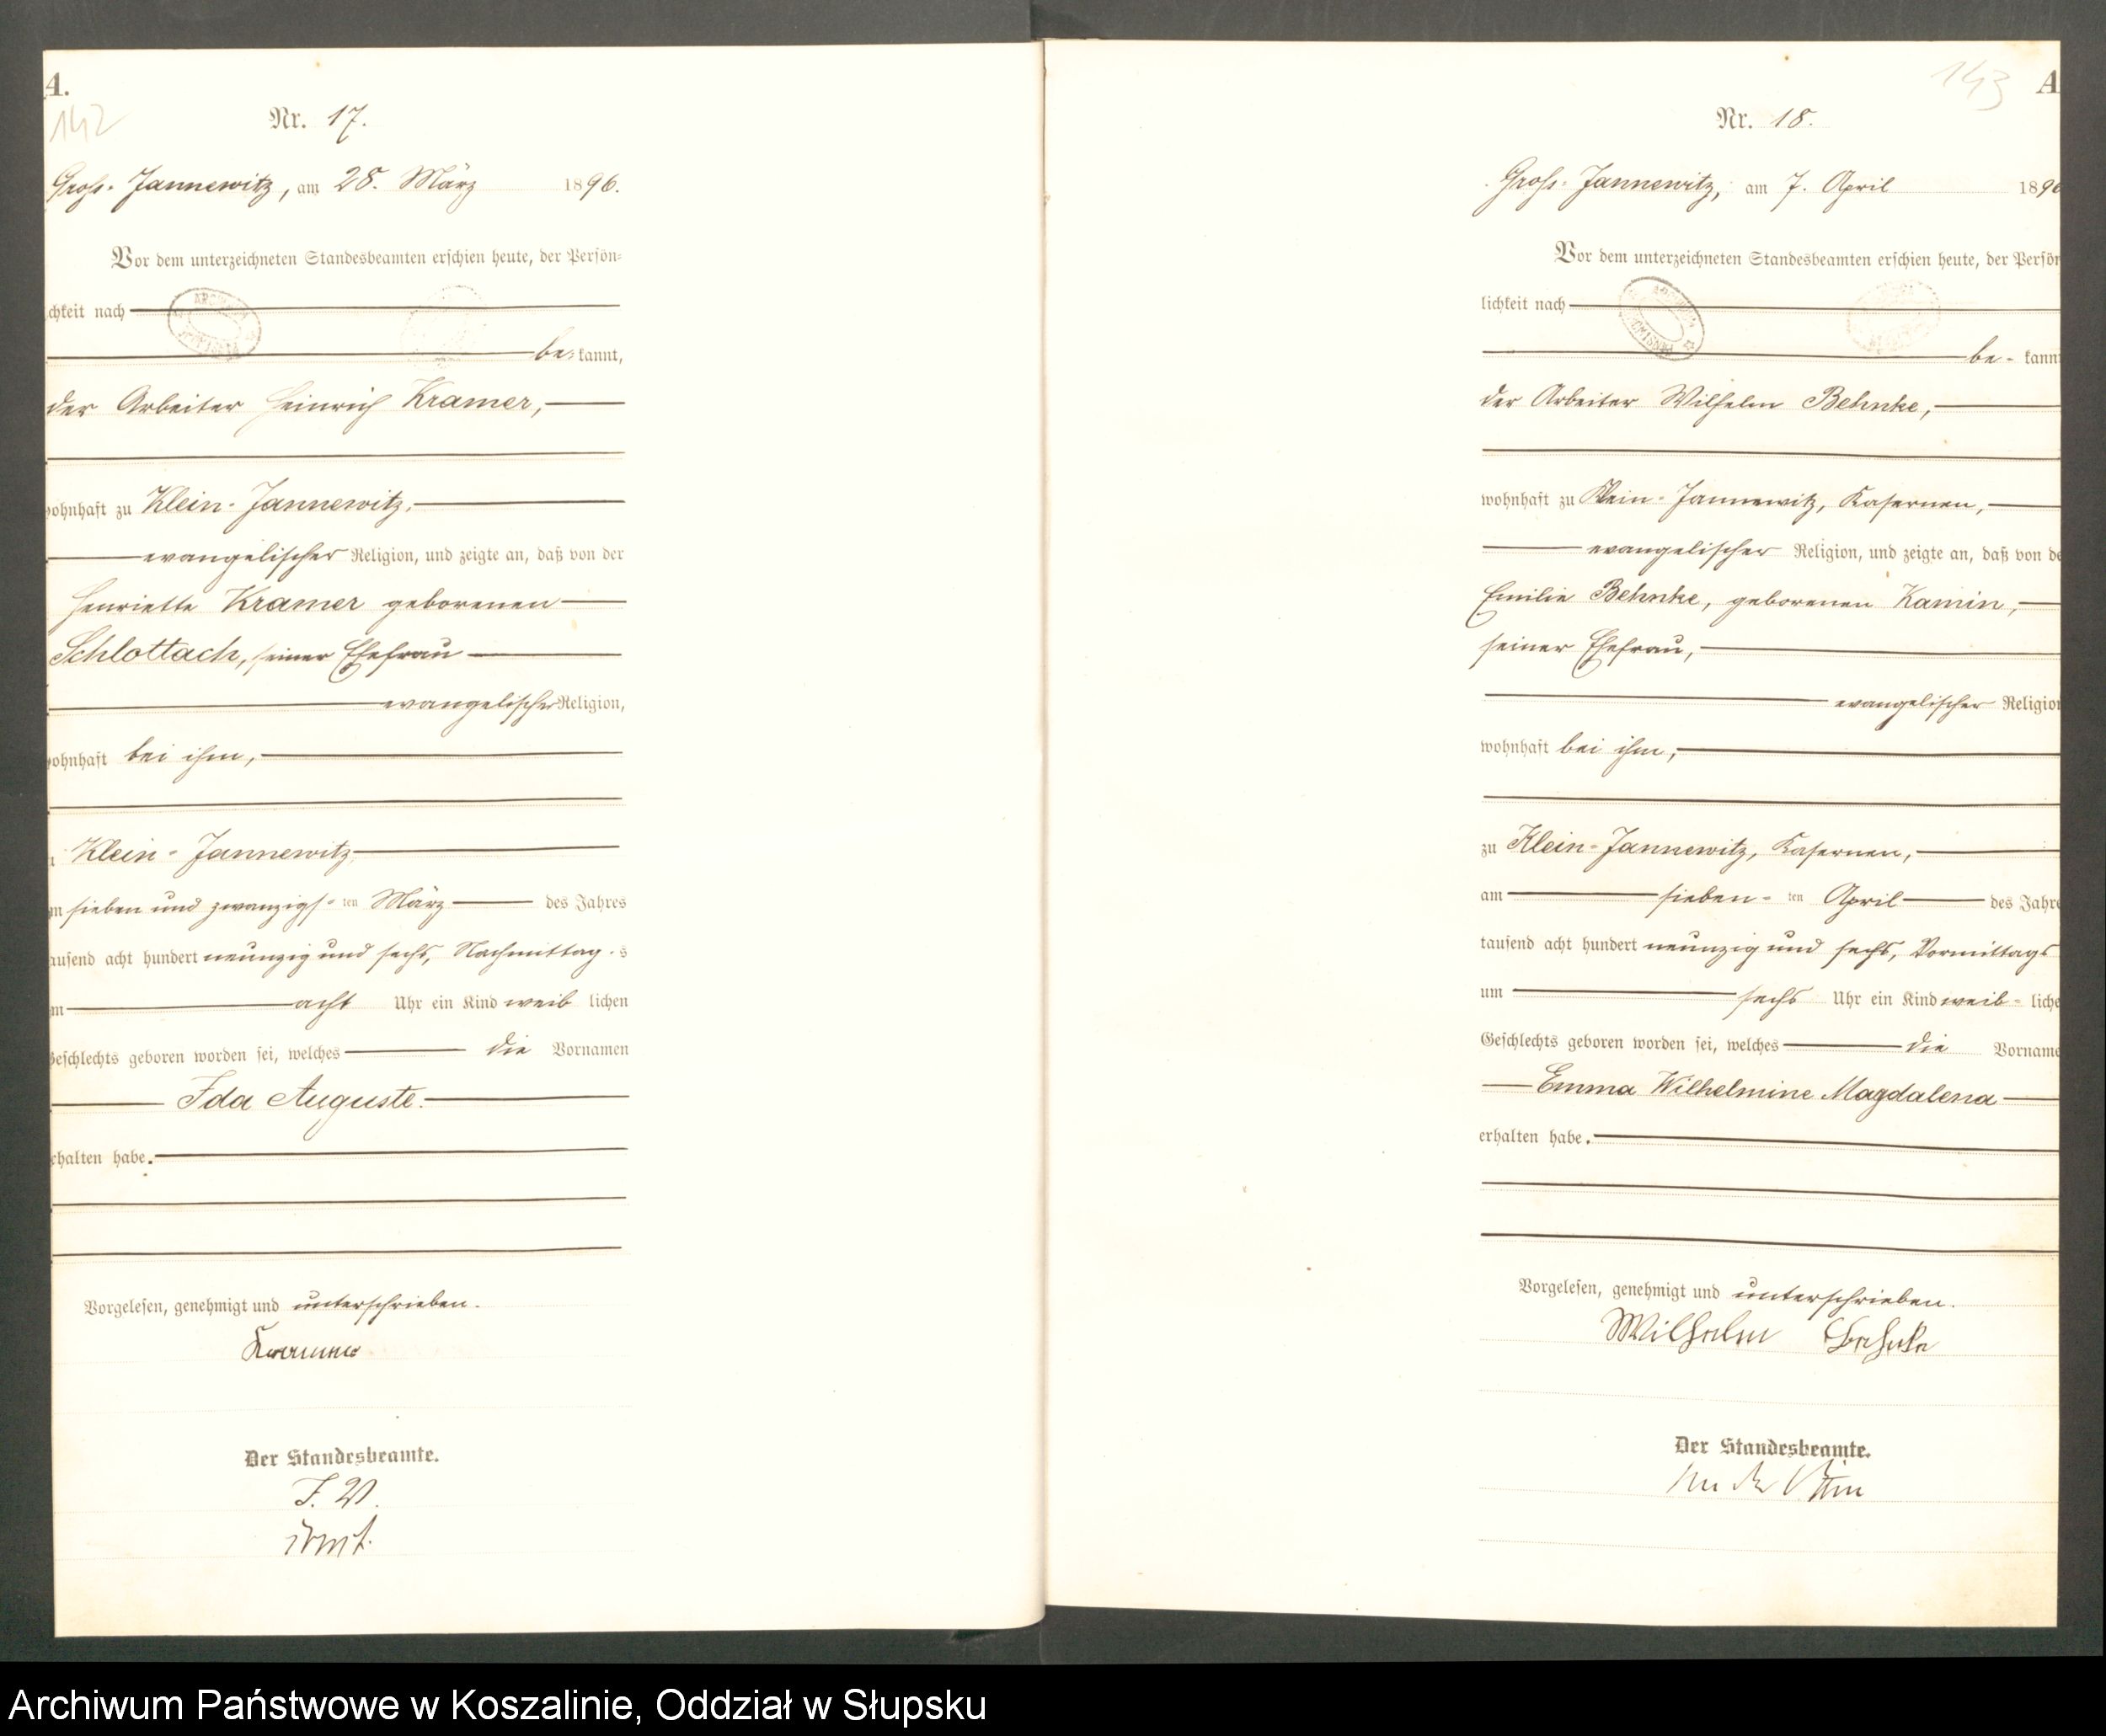 A.
142
Nr. 17.
Groß-Jannewitz, am 28. März 1896.
Vor dem unterzeichneten Standesbeamten erschien heute, der Persön-
chkeit nach
be-kannt,
der Arbeiter Heinrich Kramer,
ohnhaft zu Klein-Jannewitz,
evangelischer Religion, und zeigte an, daß von der
Henriette Kramer geborenen
Schlottach, seiner Ehefrau
evangelischer Religion,
ohnhaft bei ihm,
Klein-Jannewitz
m sieben und zwanzigs-ten März des Jahres
ausend acht hundert neunzig und sechs, Nachmittag-s
m acht Uhr ein Kind weib lichen
Geschlechts geboren worden sei, welches die Vornamen
Ida Auguste.
rhalten habe.
Vorgelesen, genehmigt und unterschrieben.
Der Standesbeamte.
J. V.
143
A
Nr. 18.
Groß-Jannewitz, am 7. April 1896
Vor dem unterzeichneten Standesbeamten erschien heute, der Persön
lichkeit nach
be-kannt
der Arbeiter Wilhelm Behnke,
wohnhaft zu Klein-Jannewitz, Kasernen,
evangelischer Religion, und zeigte an, daß von de
Emilie Behnke, geborenen Kamin,
seiner Ehefrau,
evangelischer Religion
wohnhaft bei ihm,
zu Klein-Jannewitz, Kasernen,
am sieben-ten April des Jahre
tausend acht hundert neunzig und sechs, Vormittags
um sechs Uhr ein Kind weib-liche
Geschlechts geboren worden sei, welches die Vorname
Emma Wilhelmine Magdalena
erhalten habe.
Vorgelesen, genehmigt und unterschrieben.
Wilhelm Behnke
Der Standesbeamte.
Archiwum Państwowe w Koszalinie, Oddział w Słupsku